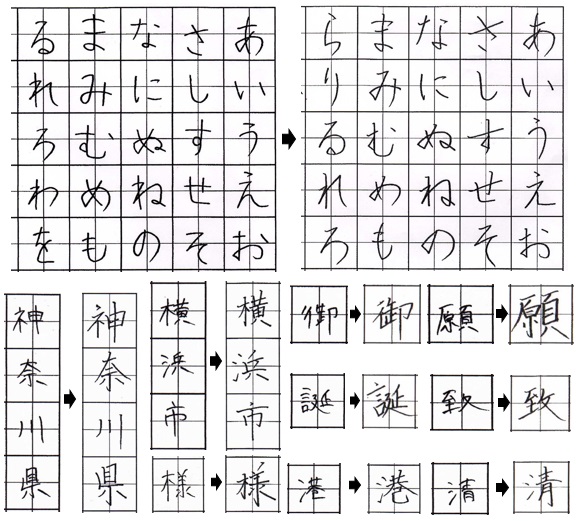 あいうえお
さしすせそ
なにぬねの
まみむめも
るれろわを
あいうえお
さしすせそ
なにぬねの
まみむめも
らりるれろ
神奈川県
神奈川県
横浜市
横浜市
様 様
御 御
願 願
誕 誕
致 致
港 港
清 清